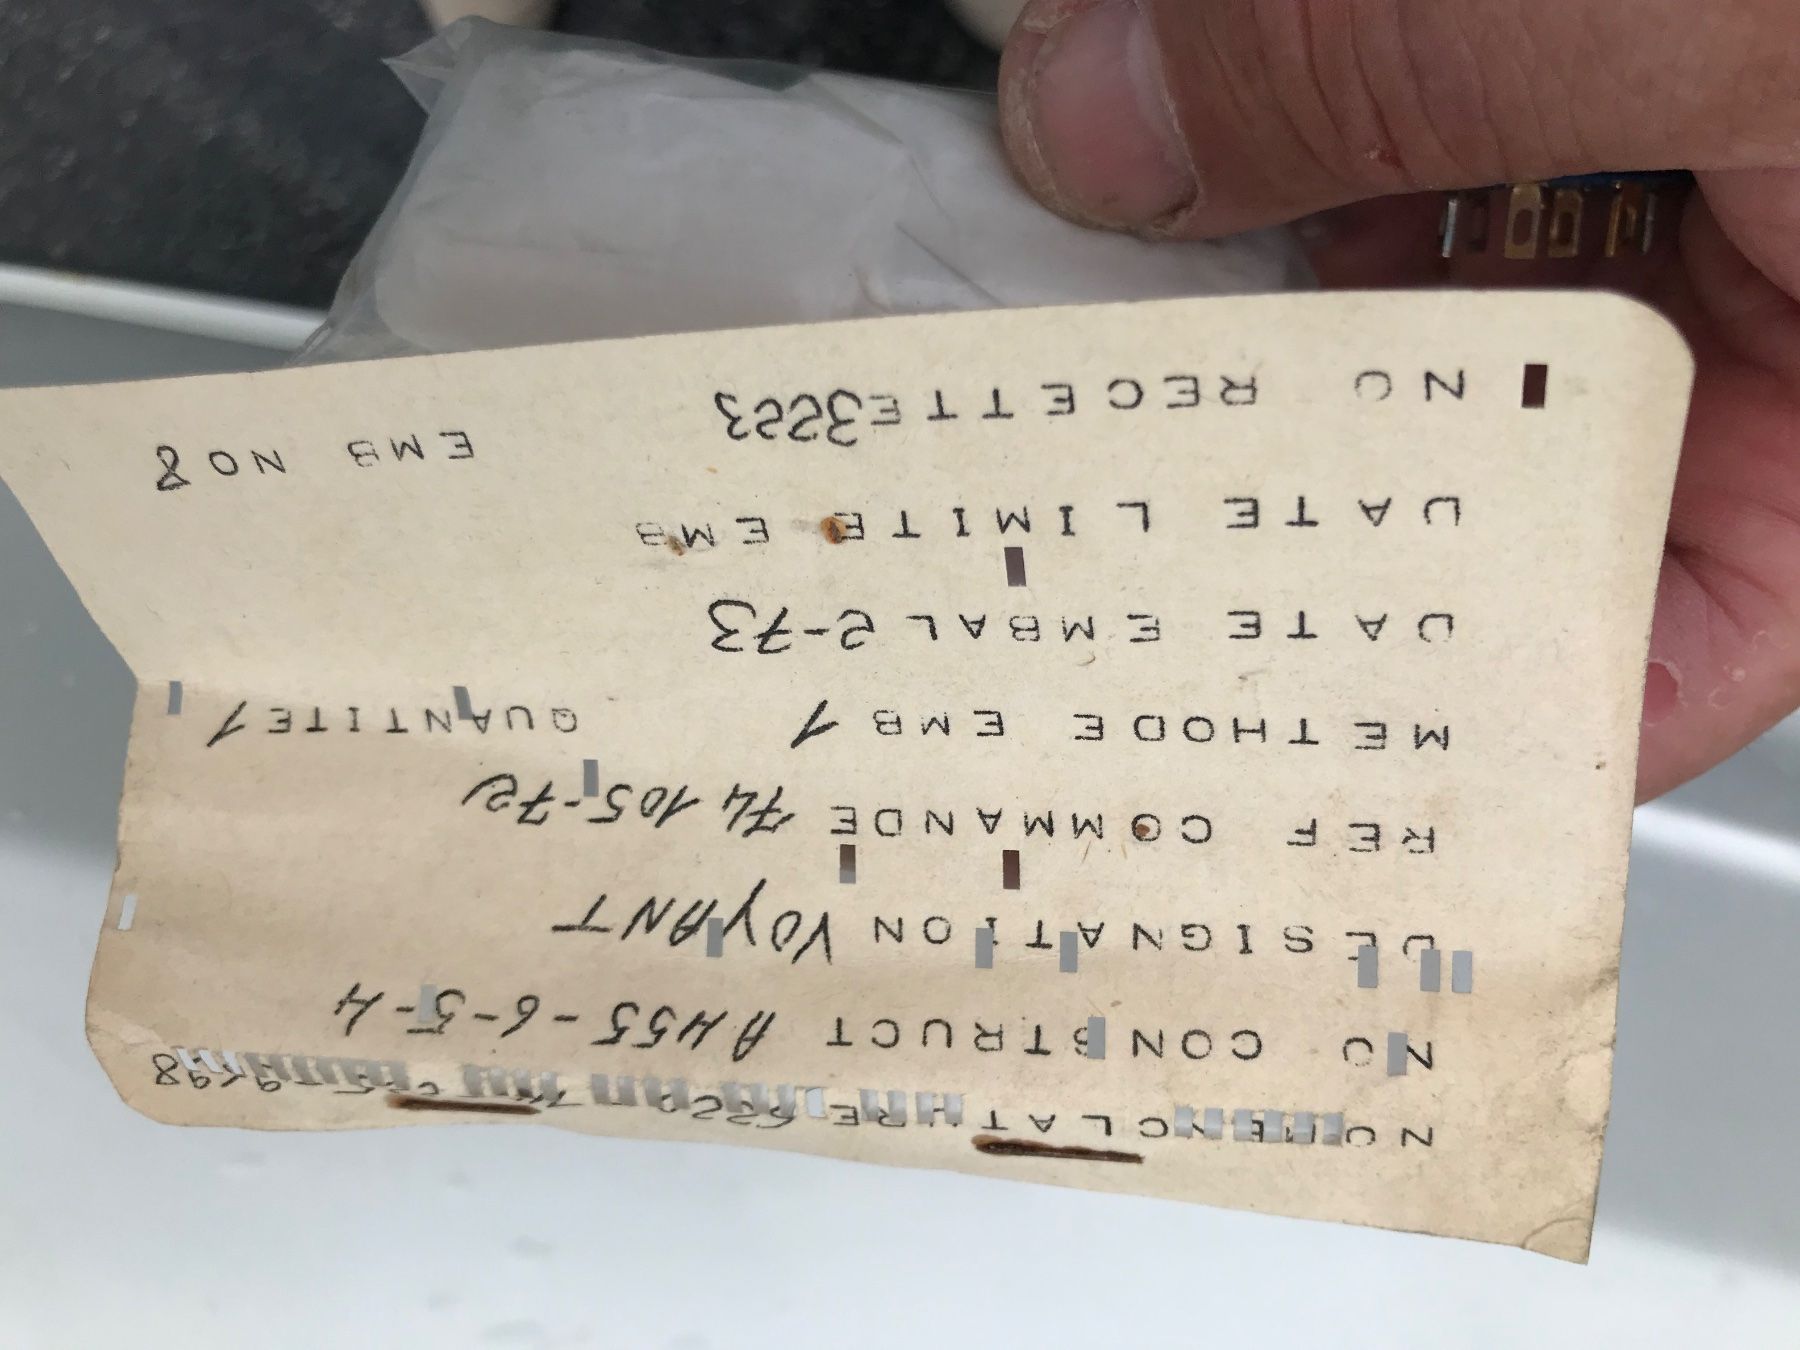 NOMENCLATURE
NO CONSTRUCT AH55-6-5-4
DESIGNATION VOYANT
REF COMMANDE 74 105-72
METHODE EMB 1 QUANTITE 1
DATE EMBAL 2-73
DATE LIMITE EMB
NO RECETTE 3223 EMB NO 8